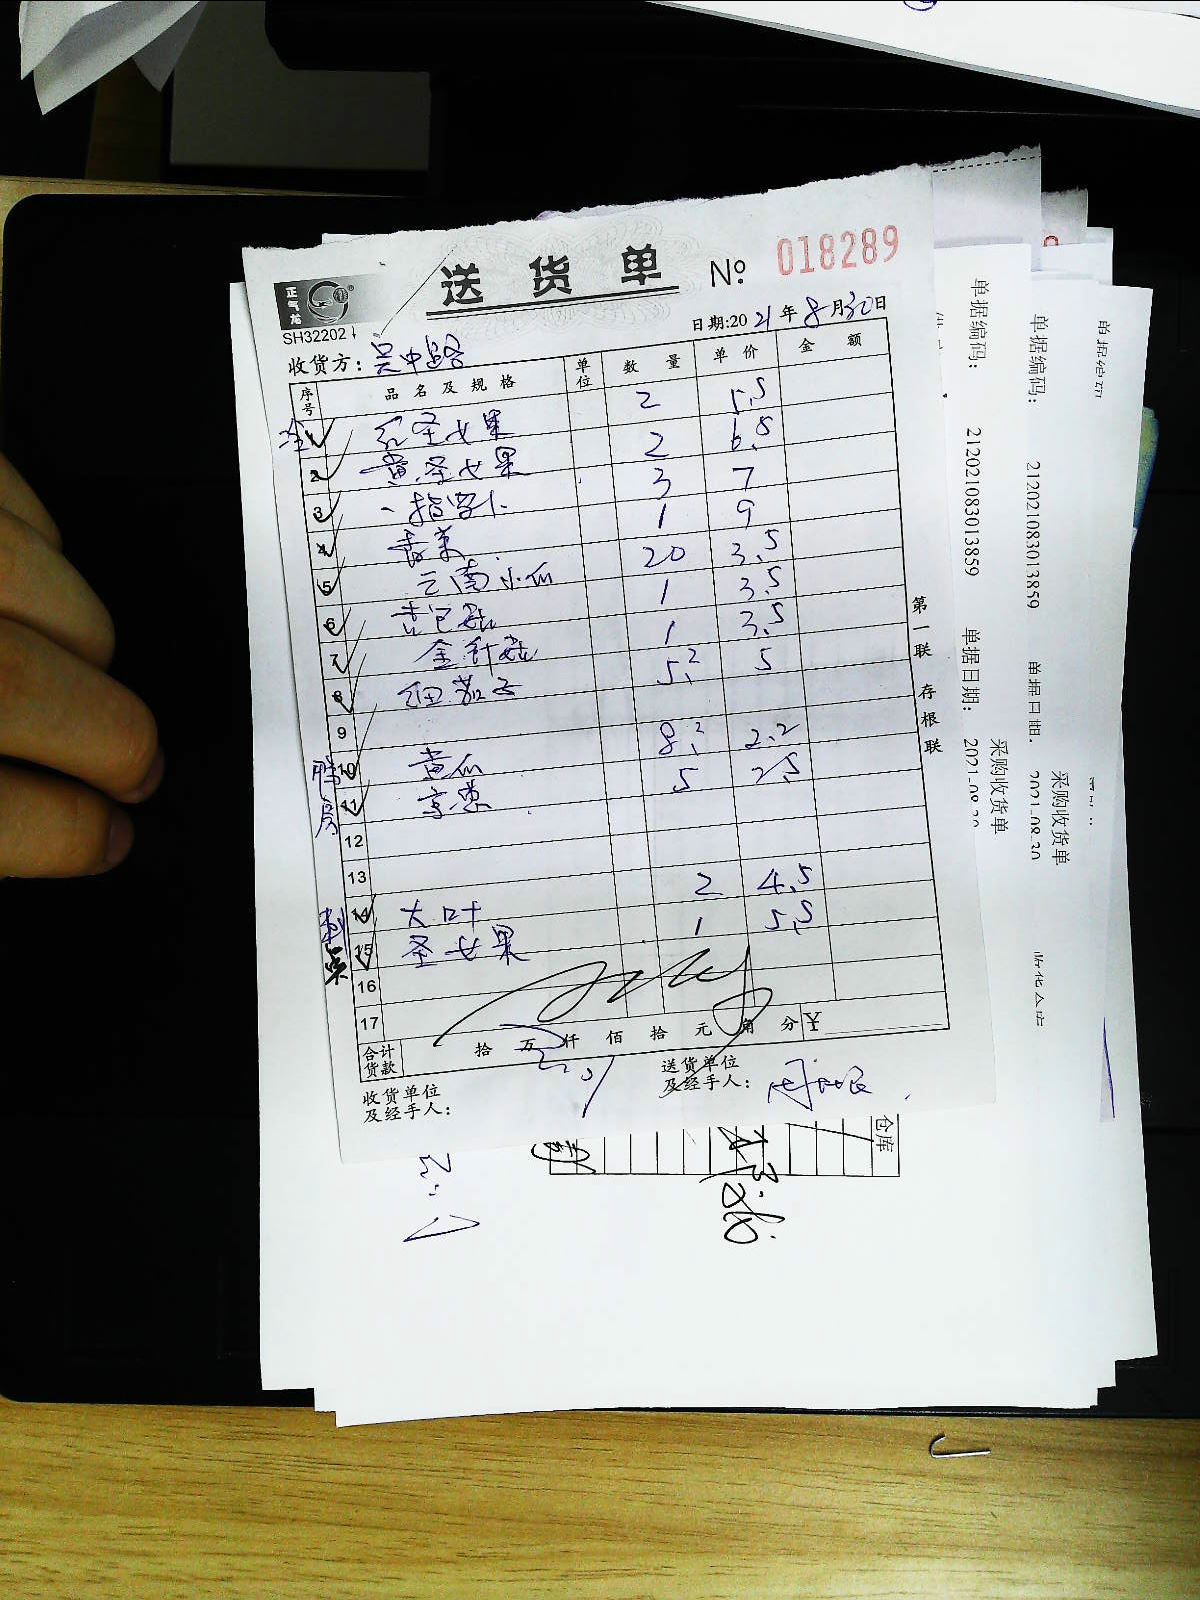 送货单 No 018289
正气龙
SH32202
日期:2021年8月30日
收货方: 吴中路
序号 品名及规格 单位 数量 单价 金额
冷 1 红圣女果 2 5.5
2 黄圣女果 2 6.8
3 一指萝卜 3 7
4 香菜 1 9
5 云南小瓜 20 3.5
6 1 3.5
7 金针菇 1 3.5
8 细茄子 5.2 5
9
鸭房 10 黄瓜 8.2 2.2
11 京葱 5 2.5
12
13
刺 14 大叶 2 4.5
15 圣女果 1 5.5
16
17
合计货款 拾 万 仟 佰 拾 元 角 分 ¥
收货单位及经手人:
送货单位及经手人:
第一联 存根联
单据编码: 212021083013859 单据日期: 2021-08-30
采购收货单
单据编码: 212021083013859 单据日期: 2021-08-30
采购收货单
单据编码
仓库